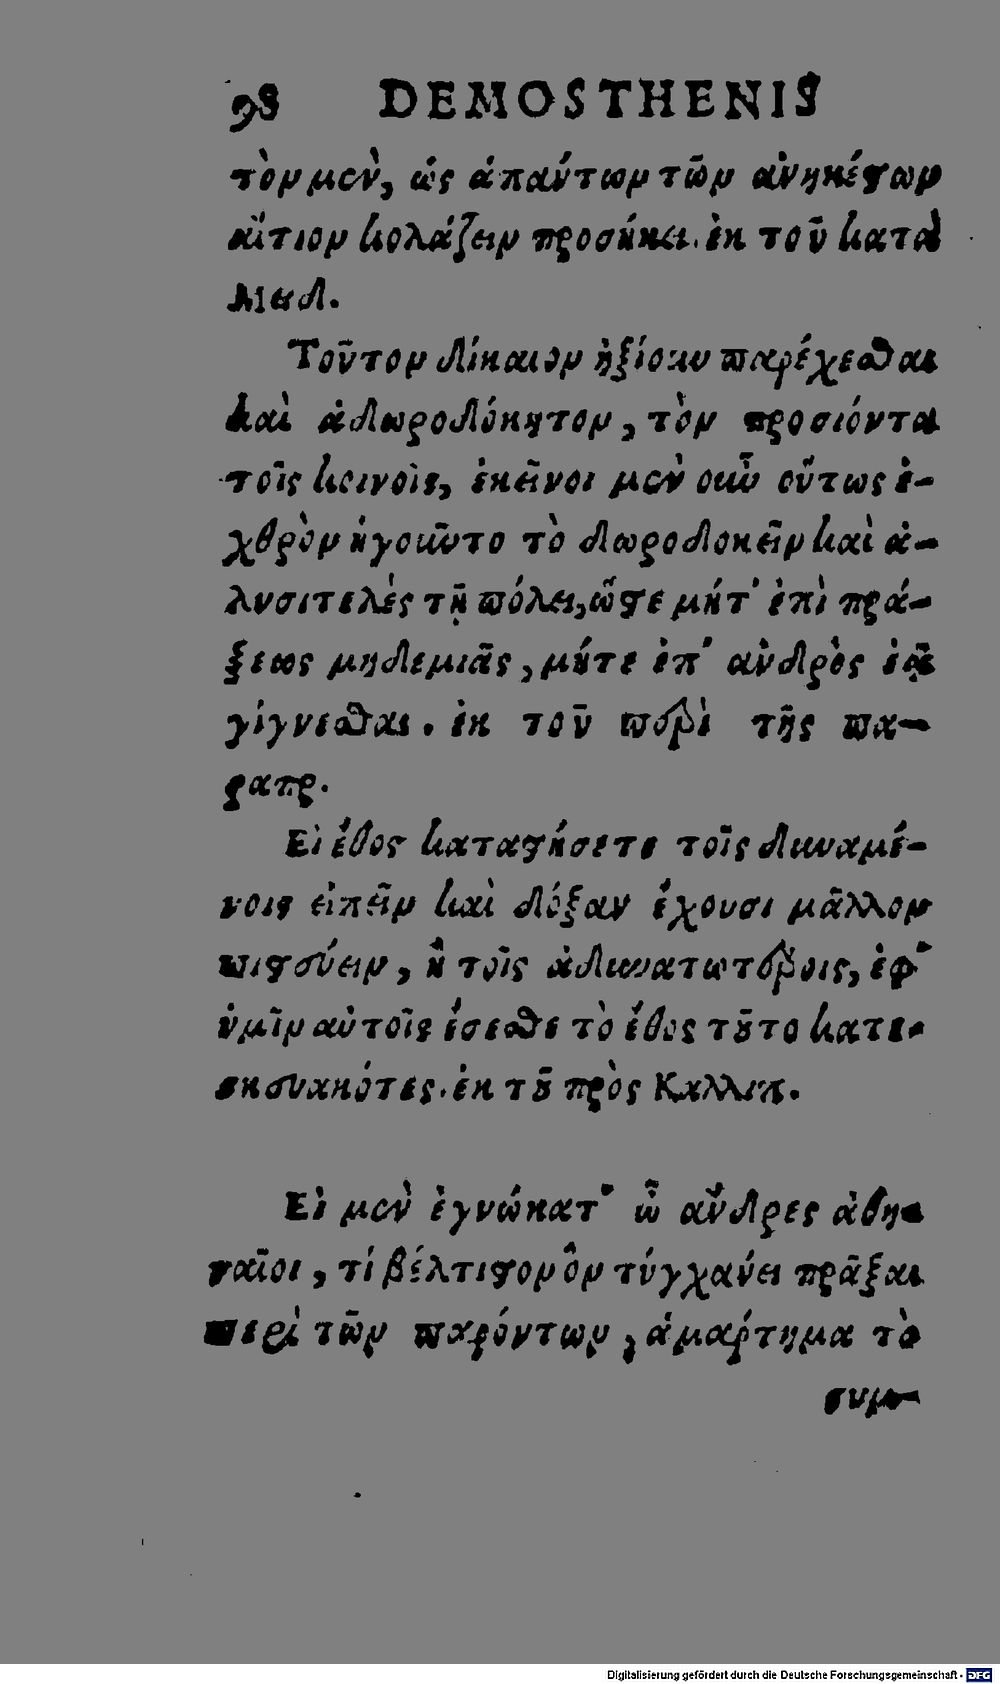 98 DEMOSTHENIS
τὸν μὲν, ὡς ἁπάντων τῶν ἀνηκέστων
αἴτιον κολάζειν προσήκει. ἐκ τοῦ κατὰ
Μειδ.
Τοῦτον δίκαιον ἠξίουν παρέχεσθαι
καὶ ἀδωροδόκητον, τὸν προσιόντα
τοῖς κοινοῖς, ἐκεῖνοι μὲν οὖν οὕτως ἐ-
χθρὸν ἡγοῦντο τὸ δωροδοκεῖν καὶ ἀ-
λυσιτελὲς τῇ πόλει, ὥστε μήτ' ἐπὶ πρά-
ξεως μηδεμιᾶς, μήτε ἐπ' ἀνδρὸς ἐᾷν
γίγνεσθαι. ἐκ τοῦ περὶ τῆς πα-
ραπρ.
Εἰ ἔθος καταστήσετε τοῖς δυναμέ-
νοις εἰπεῖν καὶ δόξαν ἔχουσι μᾶλλον
πιστεύειν, ἢ τοῖς ἀδυνατωτέροις, ἐφ'
ὑμῖν αὐτοῖς ἔσεσθε τὸ ἔθος τοῦτο κατε-
σκευακότες. ἐκ τοῦ πρὸς Καλλιπ.
Εἰ μὲν ἐγνώκατ' ὦ ἄνδρες ἀθη-
ναῖοι, τί βέλτιστον ὂν τυγχάνει πρᾶξαι
περὶ τῶν παρόντων, ἁμάρτημα τὸ
συμ-
Digitalisierung gefördert durch die Deutsche Forschungsgemeinschaft - DFG